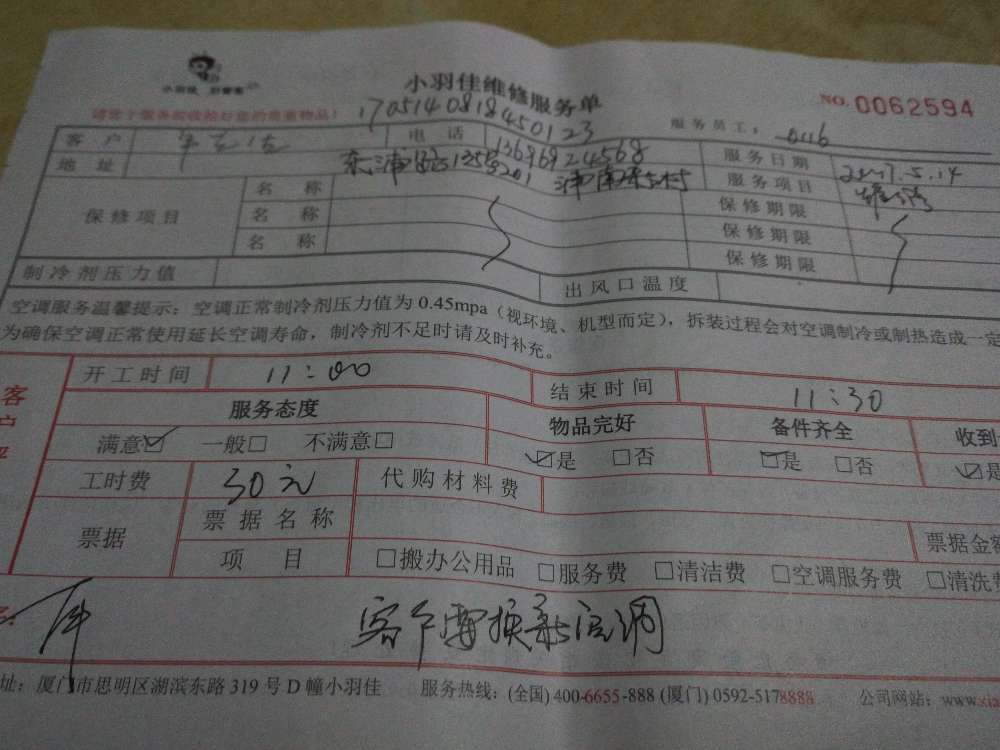 小羽佳 好管家
小羽佳维修服务单
NO. 0062594
170514081845012​3
服务员工: 0116
客户 电话 13696924568 服务日期 2017.5.14
地址 东浦路135号201 服务项目 维修
保修项目 名称 保修期限
名称 保修期限
名称 保修期限
制冷剂压力值 出风口温度
空调服务温馨提示：空调正常制冷剂压力值为 0.45mpa（视环境、机型而定），拆装过程会对空调制冷或制热造成一定
为确保空调正常使用延长空调寿命，制冷剂不足时请及时补充。
客户 开工时间 11:00 结束时间 11:30
服务态度 物品完好 备件齐全 收到
满意☑ 一般□ 不满意□ ☑是 □否 ☑是 □否 ☑是
工时费 30元 代购材料费
票据 票据名称 票据金额
项目 □搬办公用品 □服务费 □清洁费 □空调服务费 □清洗费
客户需换新空调
址：厦门市思明区湖滨东路 319 号 D 幢小羽佳 服务热线：(全国) 400-6655-888 (厦门) 0592-5178888 公司网站：www.xia